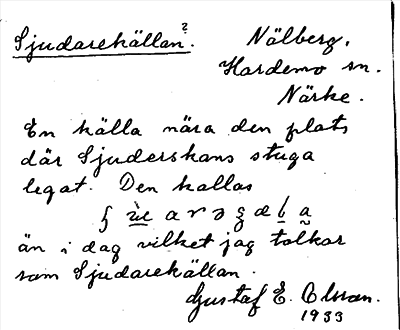 Sjudarekällan?.
Nälberg.
Hardemo sn.
Närke.
En källa nära den plats
där Sjuderskans stuga
legat. Den kallas
än i dag vilket jag tolkar
som Sjudarekällan.
Gustaf E. Olsson.
1933